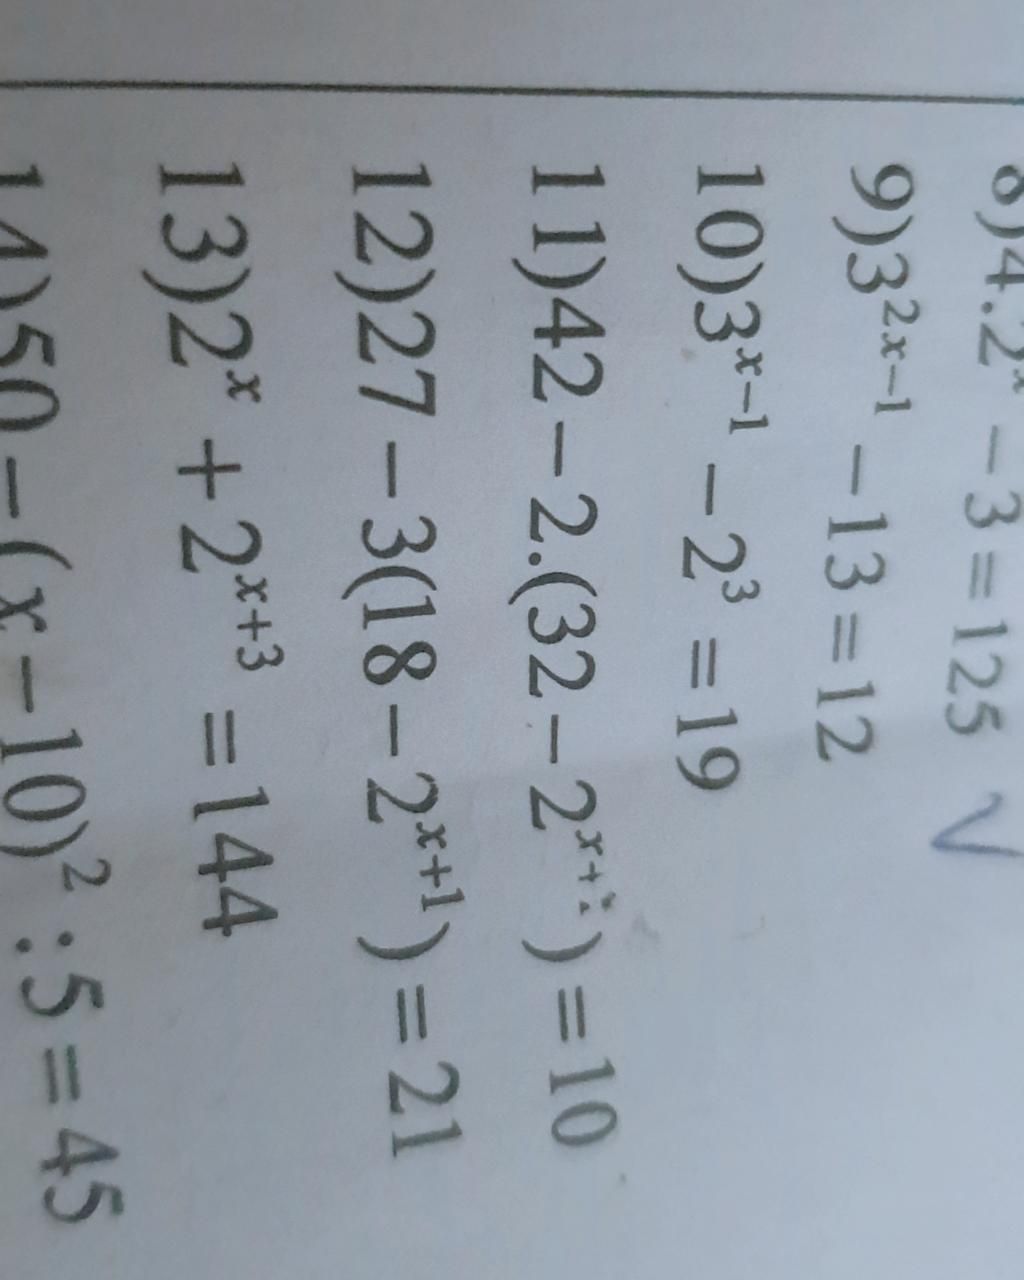 8)4.2ˣ − 3 = 125
9)3²ˣ⁻¹ − 13 = 12
10)3ˣ⁻¹ − 2³ = 19
11)42 − 2.(32 − 2ˣ⁺ ) = 10
12)27 − 3(18 − 2ˣ⁺¹) = 21
13)2ˣ + 2ˣ⁺³ = 144
14)50 − (x − 10)² : 5 = 45